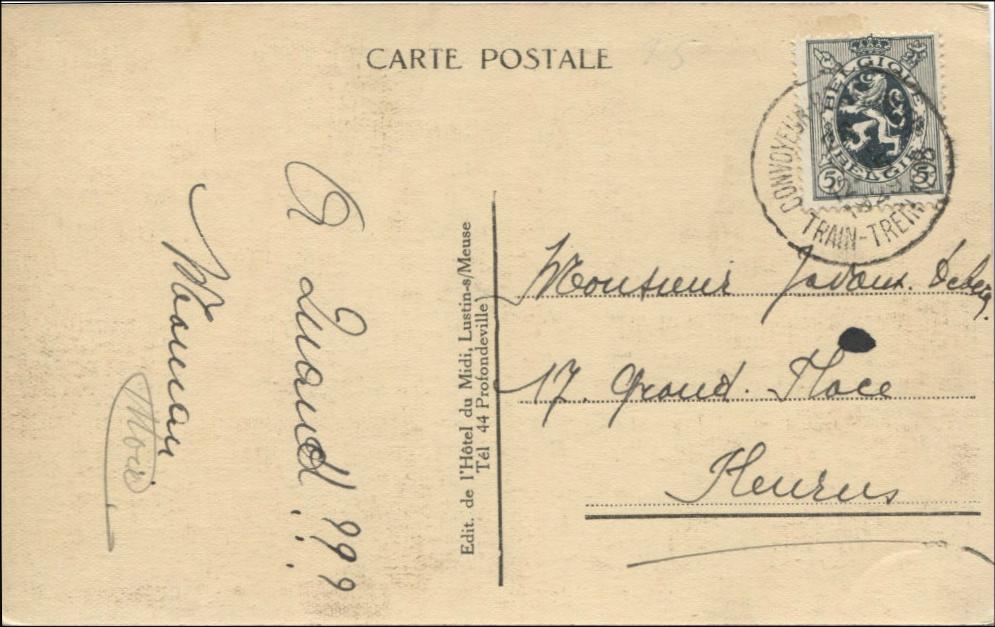 CARTE POSTALE
BELGIQUE
BELGIË
5c 5c
CONVOYEUR
TRAIN-TREIN
A Quand! ???
Maman
Edit. de l'Hôtel du Midi, Lustin-s/Meuse
Tél 44 Profondeville
Monsieur Javaux.
17. Grand. Place
Fleurus